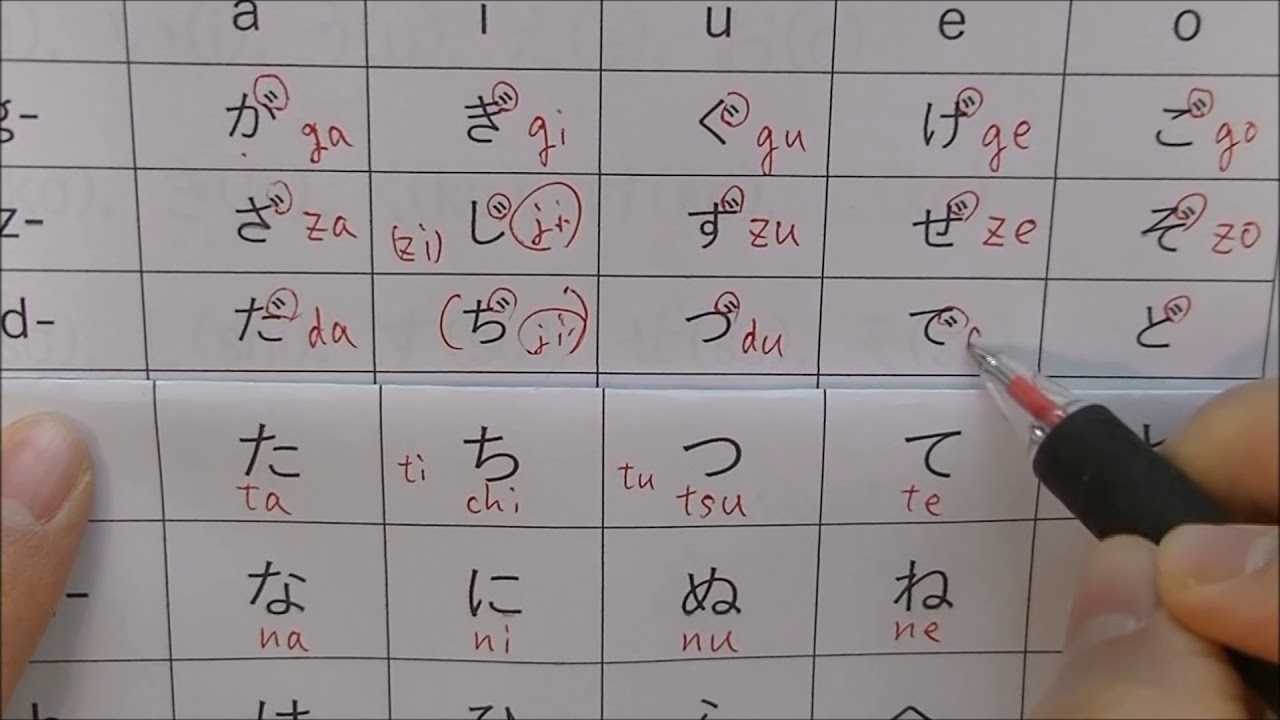 a i u e o
g- が ga ぎ gi ぐ gu げ ge ご go
z- ざ za (zi) じ ji ず zu ぜ ze ぞ zo
d- だ da (ぢ ji) づ du で ど
た ti ち tu つ て
ta chi tsu te
な に ぬ ね
na ni nu ne